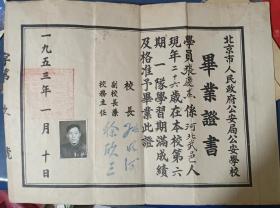 北京市人民政府公安局公安學校
畢業證書
學員張慶善係河北武邑人
現年二十六歲在本校第六
期一隊學習期滿成績
及格准予畢業此證
校長
副校長兼
校務主任
一九五三年一月十日
字第 號